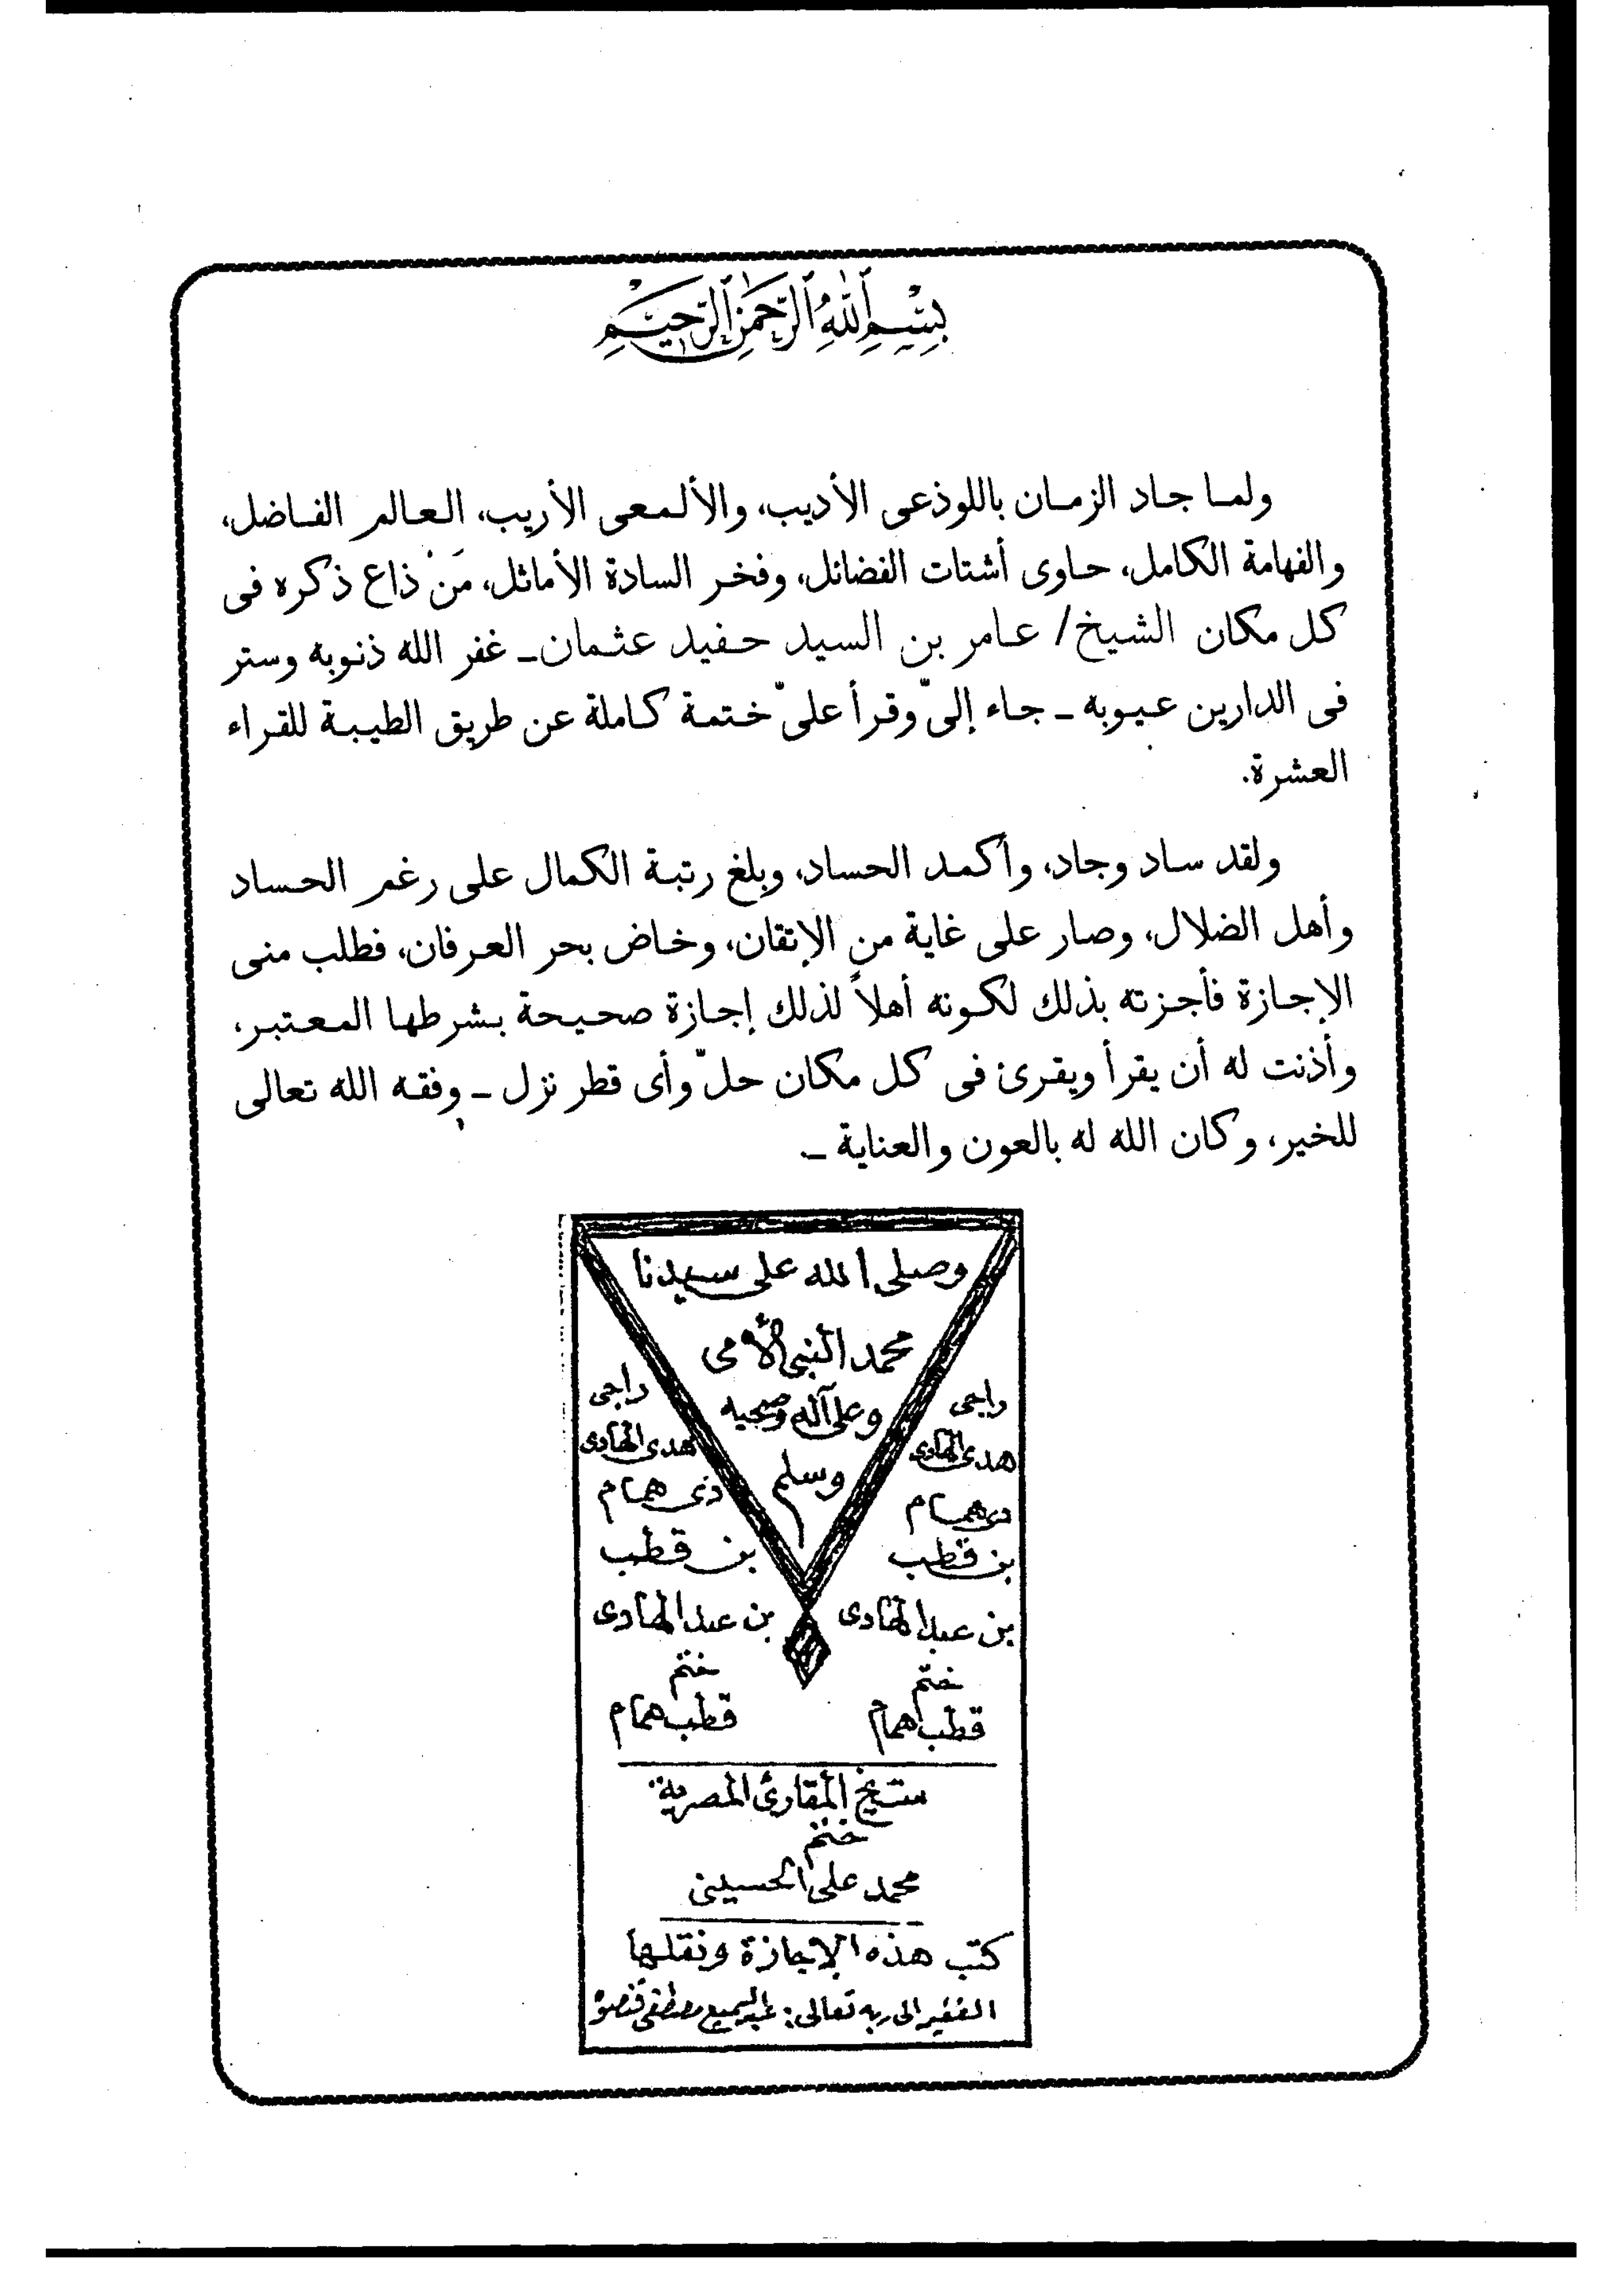 بِسْمِ اللَّهِ الرَّحْمَنِ الرَّحِيمِ
ولما جاد الزمان باللوذعى الأديب، والألمعى الأريب، العالم الفاضل،
والفهامة الكامل، حاوى أشتات الفضائل، وفخر السادة الأماثل، مَنْ ذاع ذكره فى
كل مكان الشيخ/ عامر بن السيد حفيد عثمان ـ غفر الله ذنوبه وستر
فى الدارين عيوبه ـ جاء إلىّ وقرأ علىّ ختمة كاملة عن طريق الطيبة للقراء
العشرة.
ولقد ساد وجاد، وأكمد الحساد، وبلغ رتبة الكمال على رغم الحساد
وأهل الضلال، وصار على غاية من الإتقان، وخاض بحر العرفان، فطلب منى
الإجازة فأجزته بذلك لكونه أهلاً لذلك إجازة صحيحة بشرطها المعتبر،
وأذنت له أن يقرأ ويقرئ فى كل مكان حلّ وأى قطر نزل ـ وفقه الله تعالى
للخير، وكان الله له بالعون والعناية ـ.
وصلى الله على سيدنا
محمد النبى الأمى
وعلى آله وصحبه
وسلم
راجى
هدى الهادى
ذى همام
بن قطب
بن عبد الهادى
ختم
قطب همام
راجى
هدى الهادى
ذى همام
بن قطب
بن عبد الهادى
ختم
قطب همام
شيخ المقارئ المصرية
ختم
محمد على الحسينى
كتب هذه الإجازة ونقلها
الفقير إلى ربه تعالى: عبد السميع مصطفى قنصوة